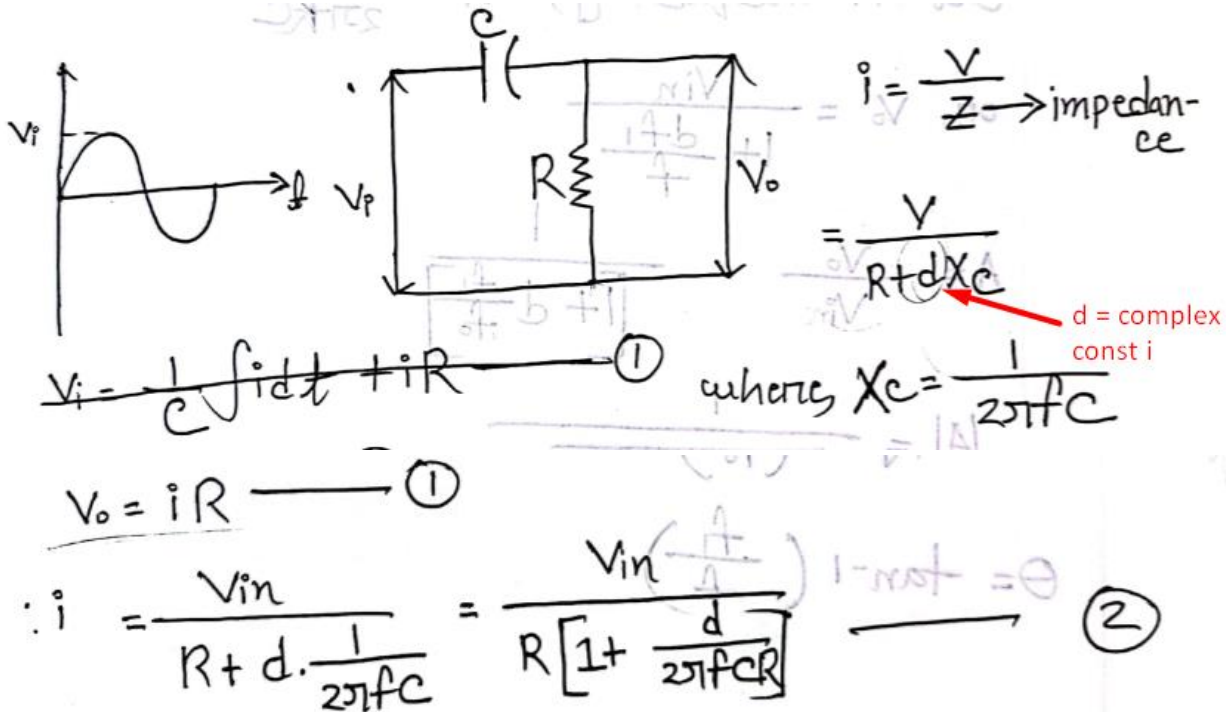 C
Vi
t
Vi
R
Vo
i = V / Z → impedan-
ce
= V / (R + d Xc)
d = complex
const i
Vi = 1/C ∫ idt + iR ——— ①
where, Xc = 1 / (2πfC)
Vo = iR ——— ①
∴ i = Vin / (R + d. 1/(2πfC)) = Vin / (R [1 + d/(2πfCR)]) ——— ②